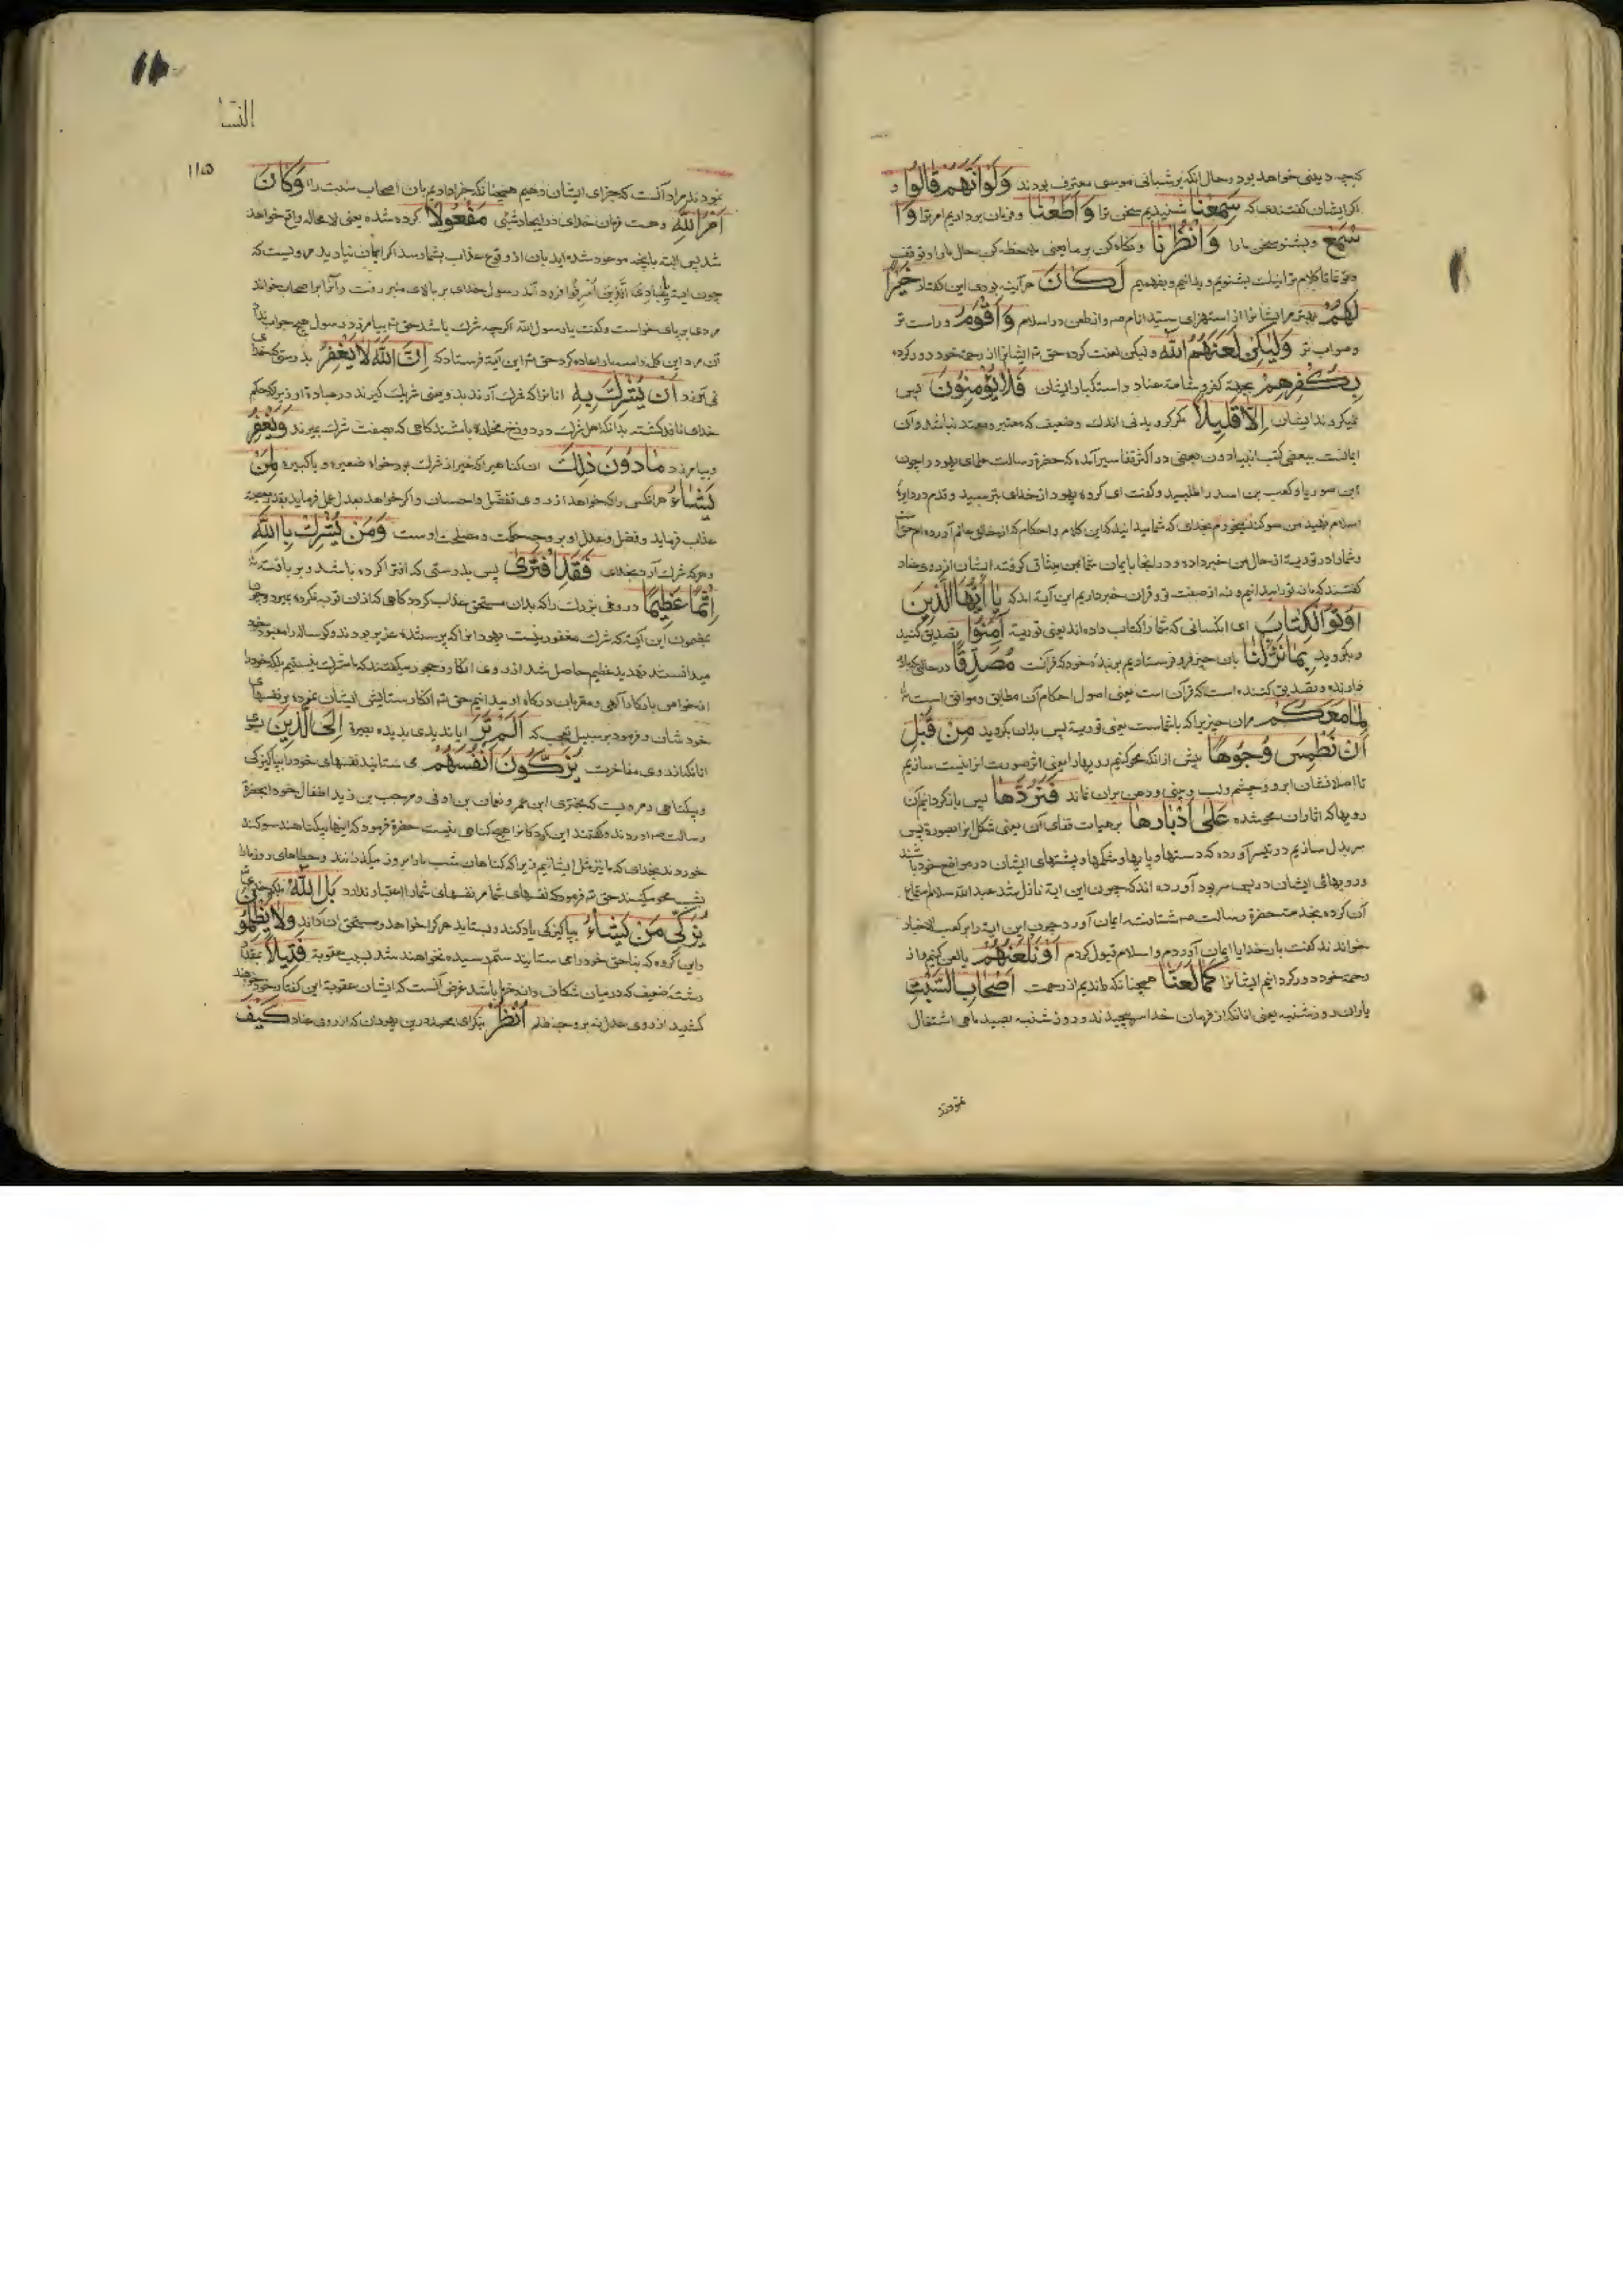 کبجه دینی خواهد بود و حال انکه بر شبانی موسی معترف بودند وَلَوْ أَنَّهُمْ قَالُوا و
اکر ایشان کفتندی که سَمِعْنَا شنیدیم سخن ترا وَأَطَعْنَا و فرمان بردادیم امر ترا وَا
سْمَعْ و بشنو سخن ما را وَانْظُرْنَا و نکاه کن بر ما یعنی ملاحظه کن حال ما را و توقف
تا کلام ترا نیک بشنویم و بدانیم و بفهمیم لَكَانَ هر آینه بودی این کفتار خَيْرًا
لَهُمْ بهتر مر ایشانرا از استهزای سید انام صم و از طعن در اسلام وَأَقْوَمَ و راست تر
و صواب تر وَلَكِنْ لَعَنَهُمُ اللَّهُ و لیکن لعنت کرده حق تم ایشانرا از رحمة خود دور کرده
بِكُفْرِهِمْ بجهة کفر و عناد و استکبار ایشان فَلَا يُؤْمِنُونَ پس
نمیکروند ایشان إِلَّا قَلِيلًا مکر کرویدنی اندک و ضعیف که معتبر و معتد نباشد و آن
ایمانست ببعضی کتب انبیا دون بعضی در اکثر تفاسیر آمده که حضرة رسالت علمای یهود را چون
ابن صوریا و کعب بن اسد را طلبید و کفت ای کروه یهود از خدای بترسید و قدم در دایرهٔ
اسلام نهید من سوکند میخورم بخدای که شما میدانید که این کلام و احکام که از خالق عالم آورده ام حق است
و شما را در توریة از حال من خبر داده و در انجا بایمان شما بمن میثاق کرفته ایشان از روی عناد
کفتند که ما نه ترا میدانیم و نه از صفت تو و قران خبر داریم این آیة امد که يَا أَيُّهَا الَّذِينَ
أُوتُوا الْكِتَابَ ای انکسانی که شما را کتاب داده اند یعنی توریة آمِنُوا تصدیق کنید
و بکروید بِمَا نَزَّلْنَا بان چیز فرو فرستادیم بر بندهٔ خود که قرآنست مُصَدِّقًا در حالی که باور
دارنده و تصدیق کننده است که قرآن است یعنی اصول احکام آن مطابق و موافق است
لِمَا مَعَكُمْ مران چیزیرا که با شماست یعنی توریة پس بدان بکروید مِنْ قَبْلِ
أَنْ نَطْمِسَ وُجُوهًا پیش از انکه محو کنیم رویها را یعنی اثر صورت انرا نیست سازیم
تا اصلا نشان ابرو و چشم و لب و بینی و دهن بران نماند فَنَرُدَّهَا پس بازکردانیم آن
رویها که اثار ان محو شده عَلَى أَدْبَارِهَا بر هیات قفای آن یعنی شکل انرا بصورة پس
سر بدل سازیم در تیسر آورده که دستها و پایها و شکمها و پشتهای ایشان در مواضع خود باشند
و رویهای ایشان در پس سر بود آورده اند که چون این ایة نازل شد عبد الله سلام استماع
آن کرده بخدمت حضرة رسالت صم شتافته ایمان آورد چون این ایة را بر کعب الاحبار
خواندند کفت بار خدایا ایمان آوردم و اسلام قبول کردم أَوْ نَلْعَنَهُمْ یا لعن کنیم و از
رحمة خود دور کردانیم ایشانرا كَمَا لَعَنَّا همچنانکه راندیم از رحمت أَصْحَابَ السَّبْتِ
یاران روز شنبه یعنی انانکه از فرمان خدا سر پیچیدند و روز شنبه بصید ماهی اشتغال
نمودند
النسا
۱۱۵
نمودند مراد آنست که جزای ایشان دهیم همچنانکه جزا دادیم بان اصحاب سبت را وَكَانَ
أَمْرُ اللَّهِ و هست فرمان خدای در ایجاد شیئی مَفْعُولًا کرده شده یعنی لا محاله واقع خواهد
شد پس البته بانچه موعود شده اید بان از وقوع عذاب بشما رسد اکر ایمان نیارید مرویست که
چون ایة يَا عِبَادِيَ الَّذِينَ أَسْرَفُوا فرود آمد رسول خدای بر بالای منبر رفت و آنرا بر اصحاب خواند
مردی بر پای خواست و کفت یا رسول الله اکر چه شرک باشد حق تم بیامرزد رسول هیچ جواب نداد
آن مرد این کلمه را سه بار اعاده کرد حق تم این آیة فرستاد که إِنَّ اللَّهَ لَا يَغْفِرُ بدرستی که خدای
نمی آمرزد أَنْ يُشْرَكَ بِهِ انانرا که شرک آرند بدو یعنی شریک کیرند در عبادة او زیرا که حکم
خدای نافذ کشته بدانکه اهل شرک در دوزخ مخلد باشند کاهی که بصفت شرک بمیرند وَيَغْفِرُ
و بیامرزد مَا دُونَ ذَلِكَ ان کناهیرا که غیر از شرک بود خواه صغیره و یا کبیره لِمَنْ
يَشَاءُ هر انکسی را که خواهد از روی تفضل و احسان و اکر خواهد بعدل عمل فرماید
عذاب فرماید و فضل و عدل او بر وجه حکمت و مصلحت اوست وَمَنْ يُشْرِكْ بِاللَّهِ
و هر که شرک آرد بخدای فَقَدِ افْتَرَى پس بدرستی که افترا کرده باشد و بر بافته
إِثْمًا عَظِيمًا دروغی بزرک را که بدان مستحق عذاب کردد کاهی که از ان توبه نکرده بمیرد و چون
مضمون این آیة که شرک مغفور نیست یهود انرا که پرستندهٔ عزیر بودند و کوساله را معبود خود
میدانستند تهدید عظیم حاصل شد از روی انکار و جحود میکفتند که ما مشرک نیستیم بلکه خود را
از خواص بارکاه آلهی و مقربان درکاه او میدانیم حق تم انکار ستایش ایشان نموده بر نفسهای
خودشان و فرمود بر سبیل تعجب که أَلَمْ تَرَ ایا ندیدی بدیده بصیرة إِلَى الَّذِينَ بسوی
انانکه از روی مفاخرت يُزَكُّونَ أَنْفُسَهُمْ می ستایند نفسهای خود را بپاکیزکی
و بیکناهی و مرویست که بحتری ابن عمر و نعمان بن اوفی و مرحب بن زید اطفال خود ابحضرة
رسالت صم اوردند و کفتند این کودکانرا هیچ کناهی نیست حضرة فرمود که اینها بیکناهند سوکند
خوردند بخدای که ما نیز مثل ایشانیم زیرا که کناهان شب ما را بروز میکذرانند و خطاهای روز ما را
بشب محو میکنند حق تم فرمود که نفسهای شما مر نفسهای شما را اعتبار ندارد بَلِ اللَّهُ بلکه خدای
يُزَكِّي مَنْ يَشَاءُ بپاکیزکی یاد کند و بستاید هر کرا خواهد و مستحق ان داند وَلَا يُظْلَمُو
و این کروه که بناحق خود را می ستایند ستم رسیده نخواهند شد بسبب عقوبة فَتِيلًا بمقدار
رشتهٔ ضعیف که در میان شکاف دانه خرما باشد غرض آنست که ایشان عقوبة این کفتار خود خواهند
کشید از روی عدل نه بر وجه ظلم انْظُرْ بنکر ای محمد درین یهودان که از روی عناد كَيْفَ